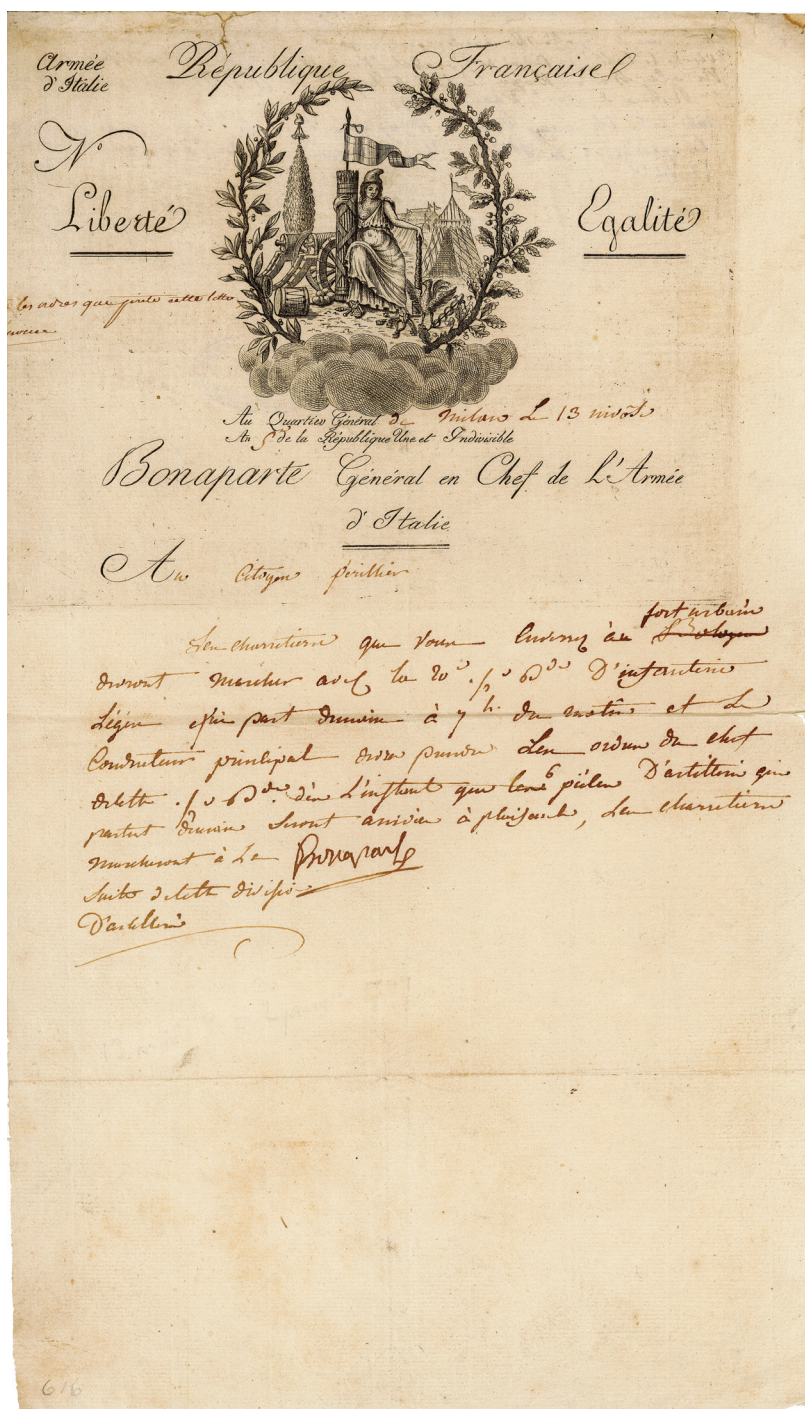 Armée
d'Italie
République Française
N°
Liberté
Egalité
les ordres que porte cette lettre
Au Quartier Général de Milan Le 13 nivose
An 5e de la République Une et Indivisible
Bonaparte Général en Chef de L'Armée
d'Italie
Au Citoyen
fort urbain
Les charretiers que vous Enverrez au
devront marcher avec la 20e D'infanterie
Légère qui part demain à 7 h. du matin et Le
Conducteur principal devra prendre Les ordres du chef
de cette dès L'instant que les 6 pièces D'artillerie qui
partent demain seront arrivées à plaisance, Les charretiers
marcheront à La
Bonaparte
suite de cette division
D'artillerie
616